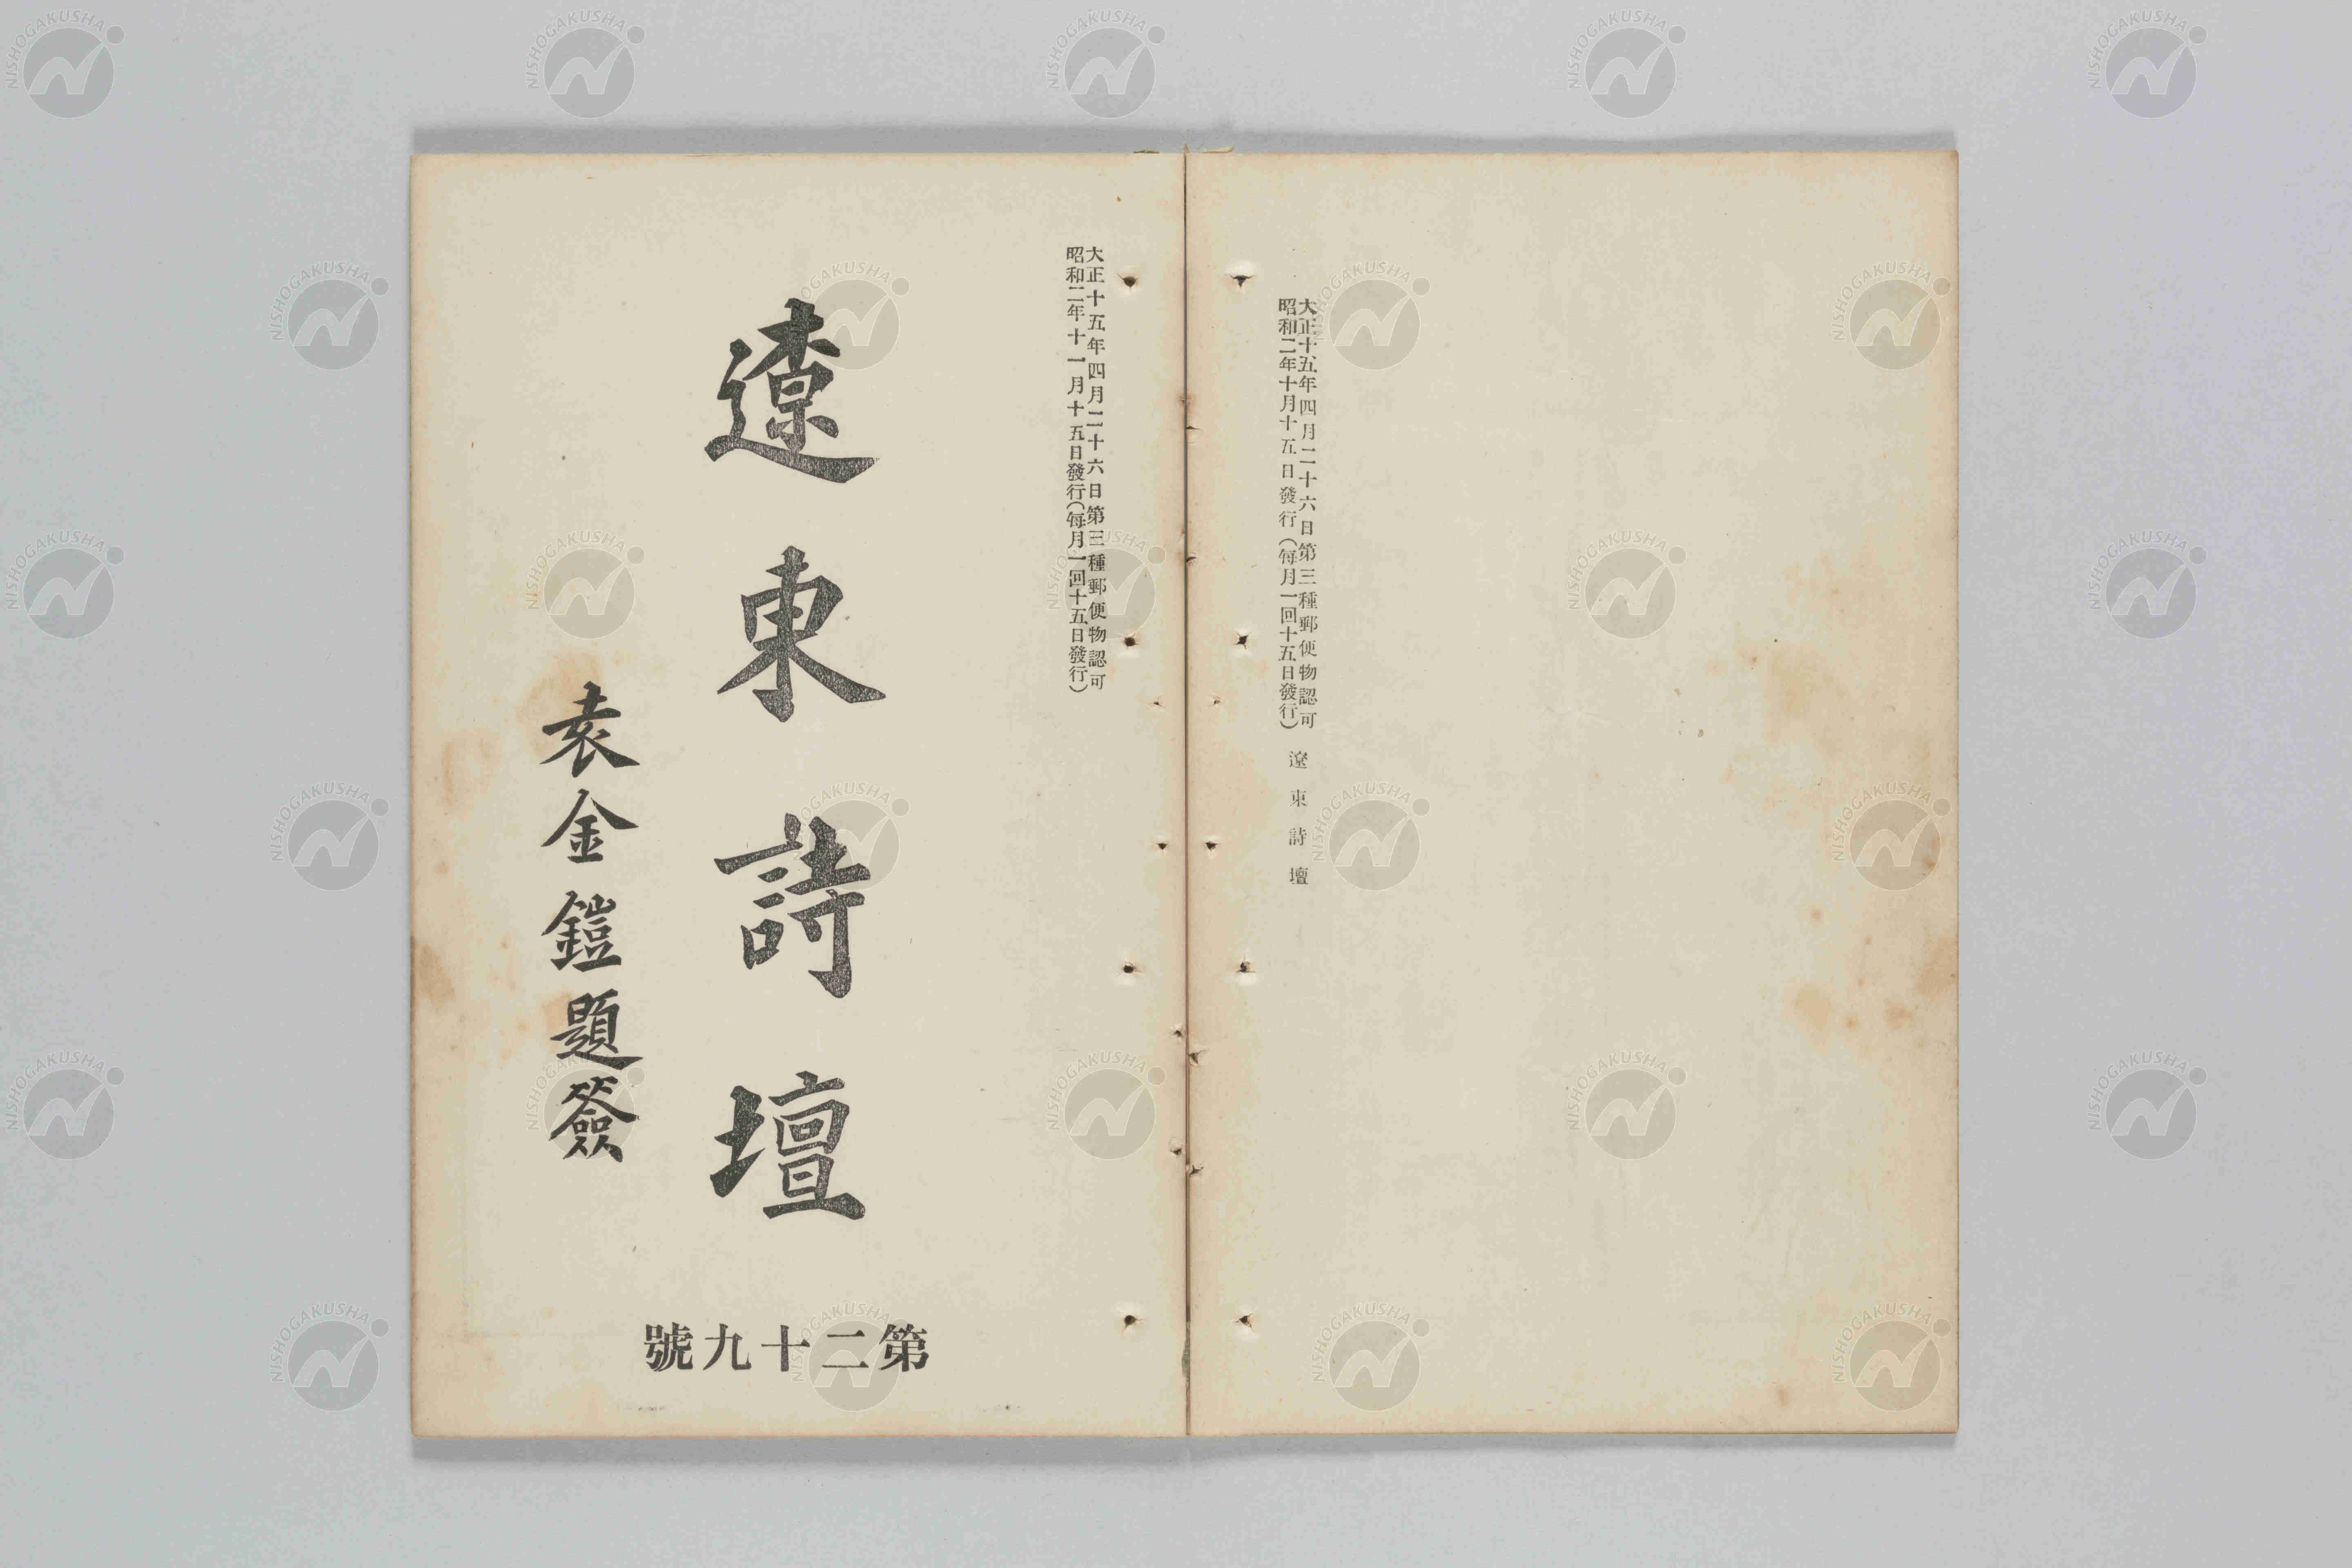 大正十五年四月二十六日第三種郵便物認可
昭和二年十月十五日發行(每月一回十五日發行)
遼東詩壇
大正十五年四月二十六日第三種郵便物認可
昭和二年十一月十五日發行(每月一回十五日發行)
遼東詩壇
袁金鎧題簽
第二十九號
NISHOGAKUSHA